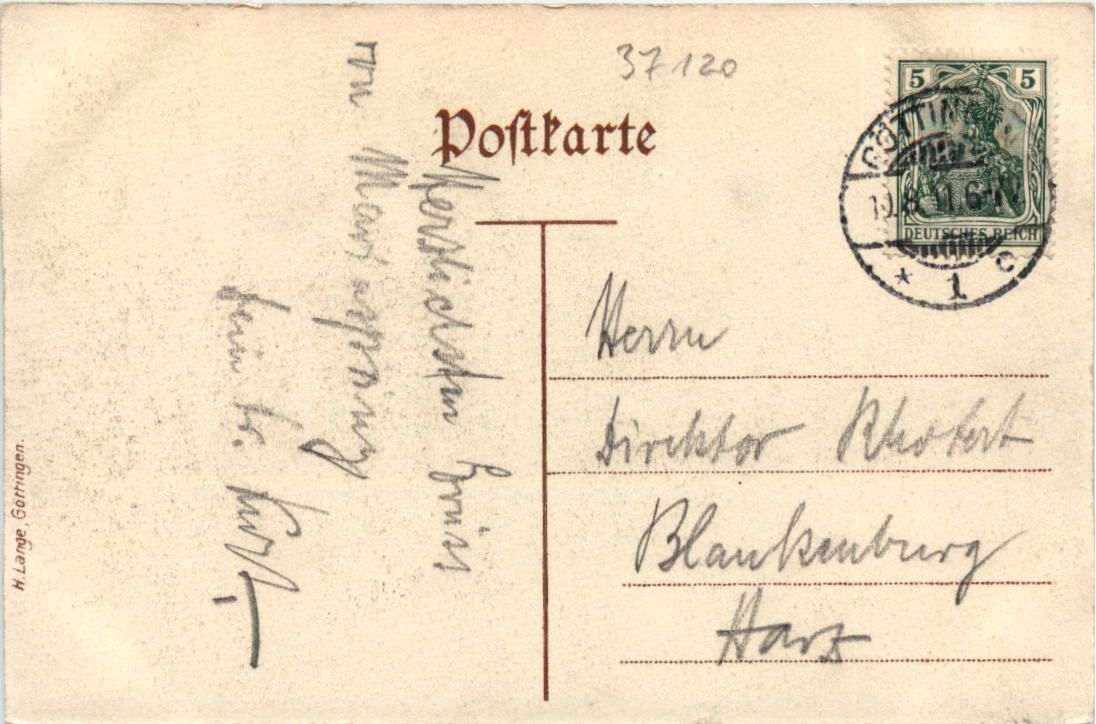 37120
Postkarte
5 5
DEUTSCHES REICH
GÖTTING
8.11.6-
* 1 c
Herrn
Direktor Rhotert
Blankenburg
Harz
Herzlichsten Gruß
von
Dein
H. Lange, Göttingen.